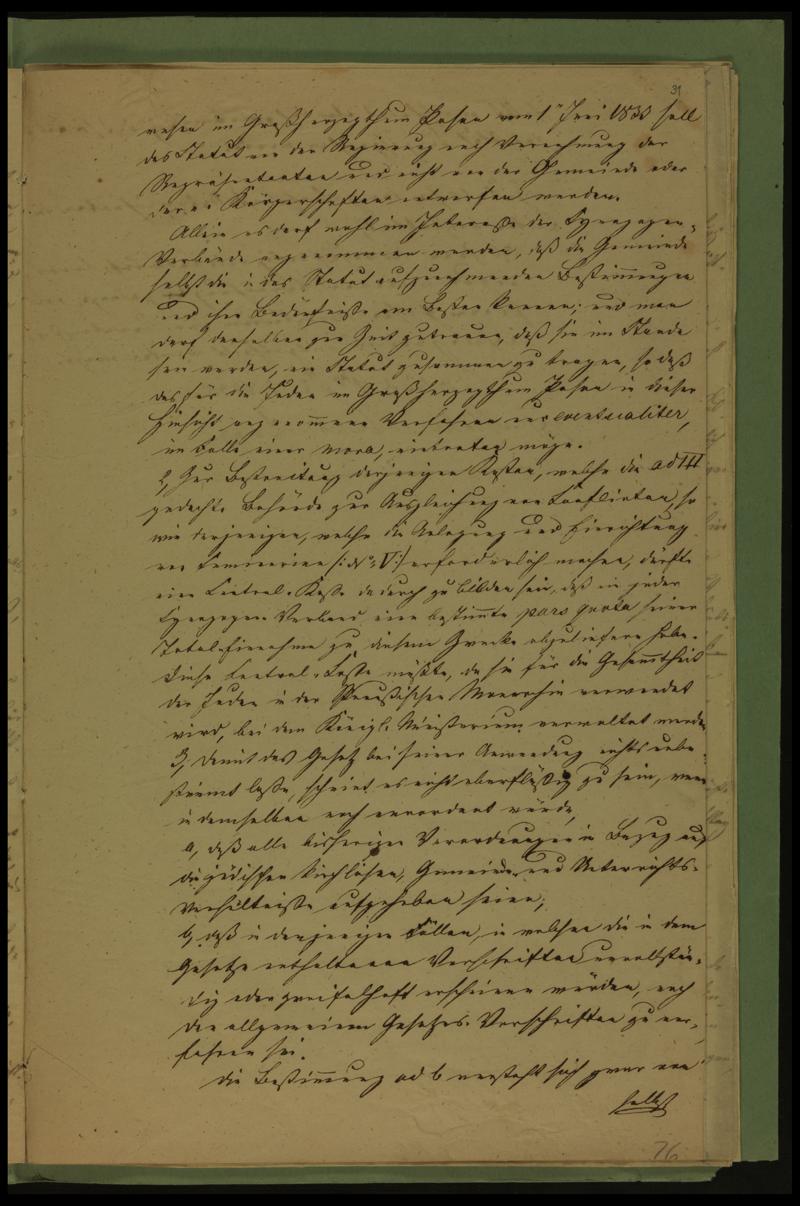 31
wesen im Großherzogthum Posen vom 1t Juni 1833 soll
das Statut von der Regierung nach Vernehmung der
Repräsentanten und nicht von der Gemeinde oder
deren Körperschaften entworfen werden.
Allein es darf wohl im Interesse der Synagogen-
Verbände angenommen werden, daß die Gemeinde
selbst die in das Statut aufzunehmenden Bestimmungen
und ihre Bedürfnisse am Besten kennen; und man
darf denselben zur Zeit zutrauen, daß sie im Stande
sein werden, ein Statut zusammen zu tragen, so daß
das für die Juden im Großherzogthum Posen in dieser
Hinsicht angenommene Verfahren nur eventualiter,
im Falle einer mora, eintreten möge.
2, Zur Bestreitung derjenigen Kosten, welche die ad III
gedachte Behörde zur Ausgleichung von Conflicten, so
wie derjenigen, welche die Anlegung und Einrichtung
von Seminarien /: No: V :/ erforderlich machen, dürfte
eine Central-Kasse dadurch zu bilden sein, daß ein jeder
Synagogen-Verband eine bestimmte pars quota seiner
Total-Einnahme zu diesem Zwecke abzuliefern habe.
Diese Central-Casse müßte, da sie für die Gesammtheit
der Juden in der Preußischen Monarchie verwendet
wird, bei dem Königl. Ministerium verwaltet werden
3, Damit das Gesetz bei seiner Anwendung nichts unbe-
stimmt lasse, scheint es nicht überflüssig zu sein, wenn
in demselben noch verordnet würde,
a, daß alle bisherigen Verordnungen in Bezug auf
die jüdischen kirchlichen, Gemeinde- und Unterrichts-
Verhältnisse aufgehoben seien;
b, daß in denjenigen Fällen, in welchen die in dem
Gesetze enthaltenen Vorschriften unvollstän-
dig oder zweifelhaft erscheinen würden, nach
den allgemeinen Gesetzes-Vorschriften zu ver-
fahren sei.
Die Bestimmung ad b versteht sich zwar von
selbst
76